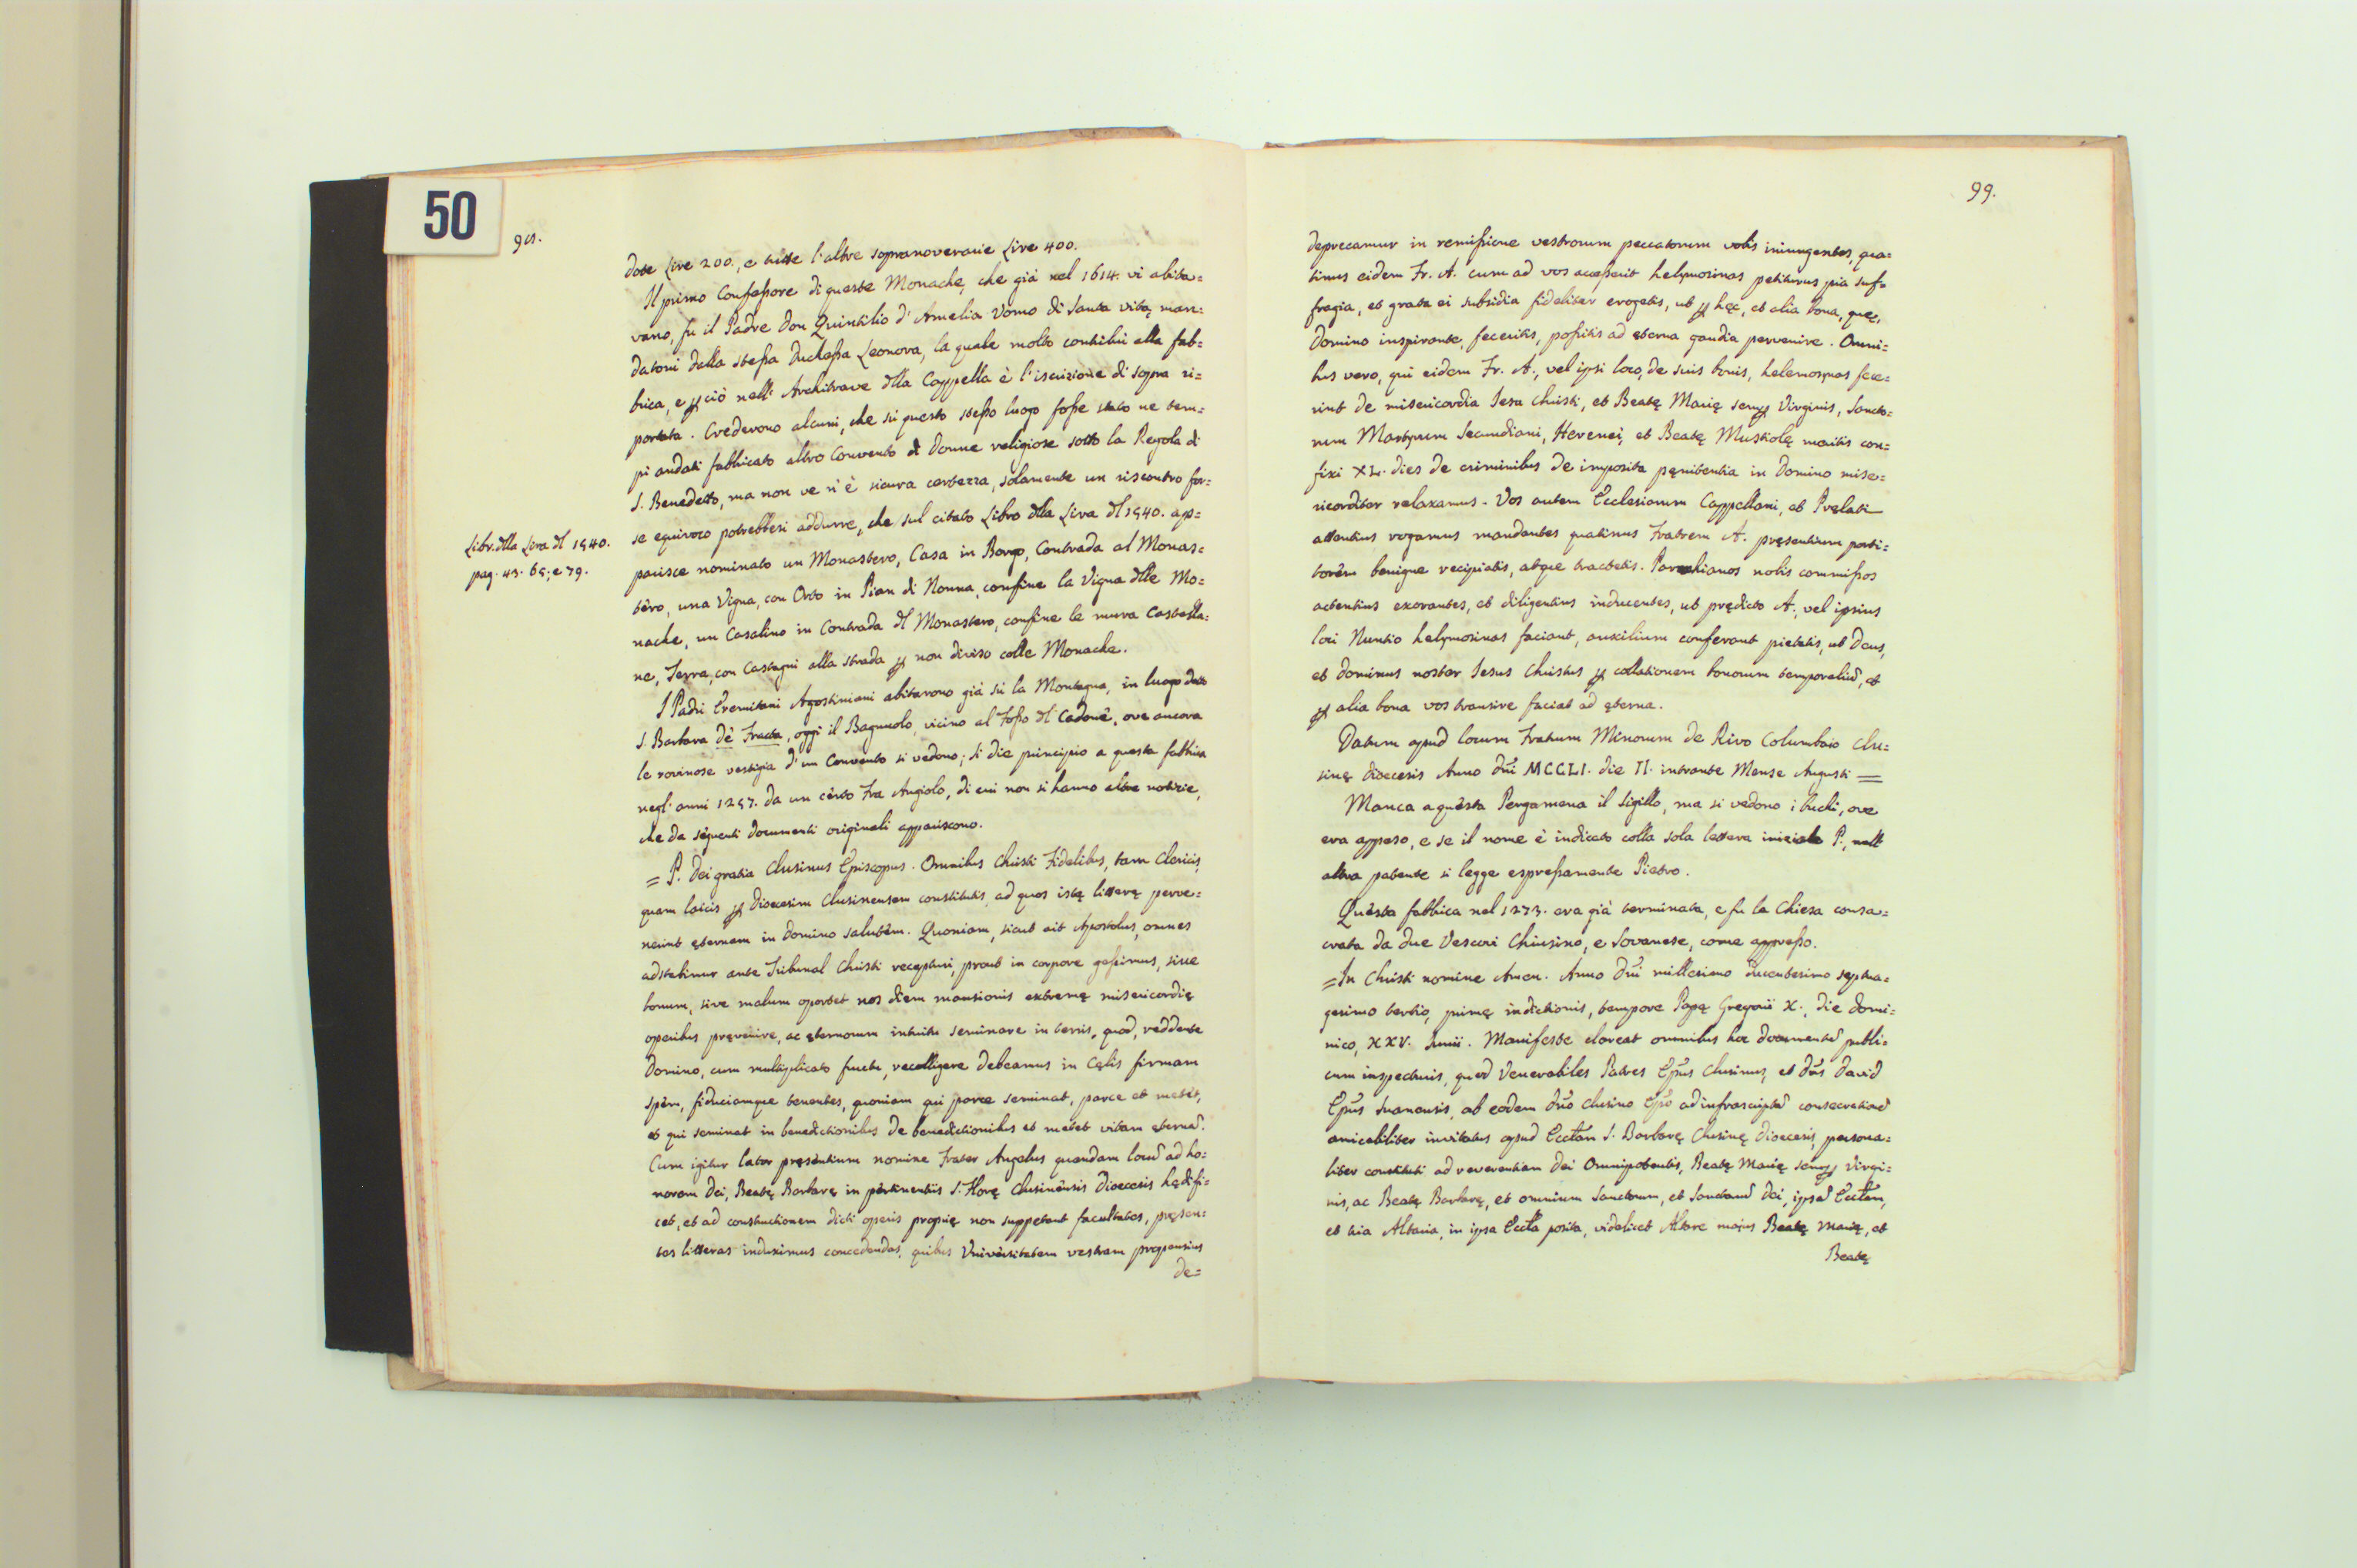 50
98.
dote Lire 200., e tutte l'altre sopranoverarie Lire 400.
Il primo Confessore di queste Monache, che già nel 1614. vi abita=
vano, fu il Padre Don Quintilio d'Amelia Uomo di Santa vita, man=
datovi dalla stessa Duchessa Leonora, la quale molto contribuì alla fab=
brica, e ꝑ ciò nell' Architrave dlla Cappella è l'iscrizione di sopra ri=
portata. Crederono alcuni, che sù questo stesso luogo fosse stato ne tem=
pi andati fabbricato altro Convento di Donne religiose sotto la Regola di
S. Benedetto, ma non ve n'è sicura certezza, solamente un riscontro for=
se equivoco potrebbesi addurre, che sul citato Libro dlla Lira dl 1540. ap=
parisce nominato un Monastero, Casa in Borgo, Contrada al Monas=
tèro, una Vigna, con Orto in Pian di Nonna, confine la Vigna dlle Mo=
nache, un Casalino in Contrada dl Monastero, confine le mura Castella=
ne, Terra, con Castagni alla strada ꝑ non diviso colle Monache.
Libr. dlla Lira dl 1540.
pag. 43. 65; e 79.
I Padri Eremitani Agostiniani abitarono già sù la Montagna, in luogo detto
S. Barbara dè Fracta, oggi il Bagnuolo, vicino al Fosso dl Cadone, ove ancora
le rovinose vestigia d'un Convento si vedono; si die principio a questa fabbrica
negl' anni 1257. da un cèrto Fra Angiolo, di cui non si hanno altre notizie,
che da sèguenti documenti originali appariscono.
= P. Dei gratia Clusinus Episcopus. Omnibus Christi Fidelibus, tam Clericis,
quam laicis ꝑ Dioecesim Clusinensem constitutis, ad quos istę litterę perve=
nerint ęternam in Domino salutèm. Quoniam, sicut ait Apostolus, omnes
adstabimur ante Tribunal Christi recepturi, prout in corpore gessimus, sive
bonum, sive malum oportet nos diem mansionis extremę misericordię
operibus pręvenire, ac ęternorum intuitu seminare in terris, quod, reddente
Domino, cum multiplicato fructu, recolligere debeamus in Cęlis firmam
spèm, fiduciamque tenentes, quoniam qui parce seminat, parce et metèt,
et qui seminat in benedictionibus de benedictionibus et metet vitam ęternā.
Cum igitur lator pręsèntium nomine Frater Angelus quendam locū ad ho=
norem Dei, Beatę Barbarę in pèrtinentiis S. Florę Clusinènsis Dioecesis hędifi=
cet, et ad constructionem dicti operis proprię non suppetant facultates, pręsen=
tes litteras induximus concedendas, quibus Univèrsitatem vestram propensius
de=
99.
deprecamur in remissione vestrorum peccatorum vobis iniungentes, qua=
tinus eidem Fr. A. cum ad vos accesserit helymosinas petiturus pia suf=
fragia, et grata ei subsidia fideliter erogetis, ut ꝑ hęc, et alia bona, quę,
Domino inspirante, feceritis, possitis ad ęterna gaudia pervenire. Omni=
bus vero, qui eidem Fr. A., vel ipsi loco, de suis bonis, helemosynas fece=
rint de misericordia Iesu Christi, et Beatę Marię semꝑ Virginis, Sancto=
rum Martyrum Secundiani, Herenei, et Beatę Mustiolę meritis con=
fixi XL. dies de criminibus de imposita pęnitentia in Domino mise=
ricorditer relaxamus. Vos autem Ecclesiarum Cappellani, et Prelati
attentius rogamus mandantes quatinus Fratrem A. pręsentium porti=
torèm benigne recipiatis, atque tractetis. Parochianos nobis commissos
actentius exorantes, et diligentius inducentes, ut prędicto A., vel ipsius
loci Nuntio helymosinas faciant, auxilium conferant pietatis, ut Deus,
et Dominus noster Iesus Christus ꝑ collationem bonorum temporaliū, et
ꝑ alia bona vos transire faciat ad ęterna.
Datum apud locum Fratrum Minorum de Rivo Columbaio Clu=
sinę Dioecesis Anno Dñi MCCLI. die II. intrante Mense Augusti =
Manca a quèsta Pergamena il sigillo, ma si vedono i buchi, ove
era appeso, e se il nome è indicato colla sola lettera iniziale P., nell'
altra patente si legge espressamente Pietro.
Quèsta fabbrica nel 1273. era già terminata, e fu la Chiesa consa=
crata da due Vescovi Chiusino, e Sovanese, come appresso.
= In Christi nomine Amen. Anno Dñi millesimo ducentesimo septua=
gesimo tertio, primę indictionis, tempore Papę Gregorii X., die domi=
nico, XXV. Junii. Manifeste clareat omnibus hoc documentū publi=
cum inspecturis, quod Venerabiles Patres Epũs Clusinus, et Dñs David
Epũs Suanensis, ab eodem Dño Clusino Epõ ad infrascriptā consecrationē
amicabiliter invitatus apud Eccłam S. Barbarę Clusinę Dioecesis, persona=
liter constituti ad reverentiam Dei Omnipotentis, Beatę Marię semꝑ Virgi=
nis, ac Beatę Barbarę, et omnium Sanctorum, et Sanctarū Dei, ipsā Eccłam,
et tria Altaria, in ipsa Eccła posita, videlicet Altare majus Beatę Marię, et
Beatę